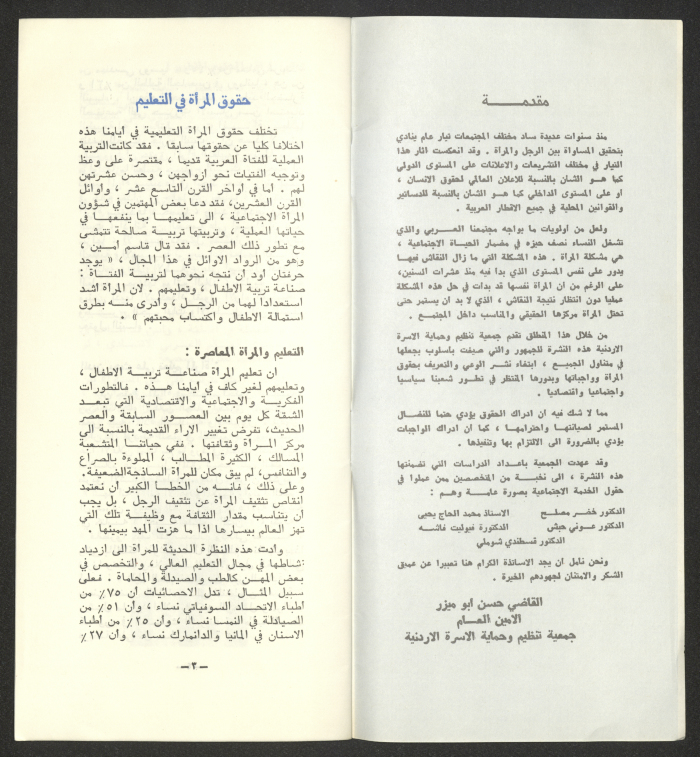 مقدمــــــة
منذ سنوات عديدة ساد مختلف المجتمعات تيار عام ينادي
بتحقيق المساواة بين الرجل والمرأة . وقد انعكست اثار هذا
التيار في مختلف التشريعات والاعلانات على المستوى الدولي
كما هــو الشأن بالنسبة للاعلان العالمي لحقوق الانسان ،
او على المستوى الداخلي كما هــو الشأن بالنسبة للدساتير
والقوانين المحلية في جميع الاقطار العربية .
ولعل من اولويات ما يواجه مجتمعنا العـــربي والذي
تشغل النساء نصف حيزه في مضمار الحيــاة الاجتماعية ،
هي مشكلة المرأة . هذه المشكلة التي ما زال النقاش فيهــا
يدور على نفس المستوى الذي بدأ فيه منذ عشرات السنين،
على الرغم من ان المرأة نفسها قد بدأت في حل هذه المشكلة
عمليا دون انتظار نتيجة النقاش ، الذي لا بد ان يستمر حتى
تحتل المرأة مركزها الحقيقي والمناسب داخل المجتمع .
من خلال هذا المنطلق تقدم جمعية تنظيم وحماية الاسرة
الاردنية هذه النشرة للجمهور والتي صيغت باسلوب يجعلها
في متناول الجميــع ، ابتغاء نشــر الوعي والتعريف بحقوق
المرأة وواجباتها وبدورها المنتظر في تطــور شعبنا سياسيا
واجتماعيا واقتصاديا .
مما لا شك فيه ان ادراك الحقوق يؤدي حتما للنضـال
المستمر لصيانتهــا واحترامهـا ، كما ان ادراك الواجبات
يؤدي بالضرورة الى الالتزام بها وتنفيذها .
وقد عهدت الجمعية باعــداد الدراسات التي تضمنتها
هذه النشرة ، الى نخبــة من المتخصصين ممن عملوا في
حقول الخدمة الاجتماعية بصورة عامـــة وهــم :
الدكتور خضــر مصلــح الاستاذ محمد الحاج يحيى
الدكتور عـــوني حبش الدكتورة فيوليت فاشــه
الدكتور قسطندي شوملي
ونحن نأمل أن يجد الاساتذة الكرام هنا تعبيرا عن عميق
الشكر والامتنان لجهودهم الخيرة .
القاضي حسن ابو ميزر
الامين العــــام
جمعية تنظيم وحماية الاسرة الاردنية
حقوق المرأة في التعليم
تختلف حقوق المرأة التعليمية في أيامنا هذه
اختلافا كليا عن حقوقها سابقا . فقد كانت التربية
العملية للفتاة العربية قديما ، مقتصرة على وعظ
وتوجيه الفتيات نحو ازواجهن ، وحسن عشرتهن
لهم . أما في أواخر القرن التاسع عشر ، وأوائل
القرن العشرين، فقد دعا بعض المهتمين في شؤون
المرأة الاجتماعية ، الى تعليمهــا بما ينفعهـــا في
حياتها العملية ، وتربيتها تربيـــة صالحة تتمشى
مع تطور ذلك العصر . فقد قال قاسم أمــين ،
وهو من الرواد الاوائل في هذا المجال ، « يوجد
حرفتان أود أن تتجه نحوهما لتربيــة الفتـــاة :
صناعة تربية الاطفال ، وتعليمهم . لان المرأة اشد
استعدادا لهما من الرجــل ، وأدرى منــه بطرق
استمالة الاطفال واكتساب محبتهم » .
التعليم والمرأة المعاصرة :
ان تعليم المرأة صناعــة تربيــة الاطفال ،
وتعليمهم لغير كاف في أيامنا هـــذه . فالتطورات
الفكريــة والاجتماعية والاقتصادية التي تبعــد
الشقة كل يوم بين العصــور السابقة والعصر
الحديث، تفرض تغيير الآراء القديمة بالنسبة الى
مركز المــرأة وثقافتها . ففي حياتنــا المتشعبة
المسالك ، الكثيرة المطالــب ، المملوءة بالصراع
والتنافس، لم يبق مكان للمرأة الساذجة الضعيفة.
وعلى ذلك ، فانــه من الخطــأ الكبير أن نعتمد
انقاص تثقيف المرأة عن تثقيف الرجل ، بل يجب
أن يتناسب مقدار الثقافة مع وظيفــة تلك التي
تهز العالم بيسارها اذا ما هزت المهد بيمينها .
وأدت هذه النظرة الحديثة للمرأة الى ازدياد
نشاطها في مجال التعليم العالي ، والتخصص في
بعض المهــن كالطب والصيدلة والمحاماة . فعلى
سبيل المثــال ، تدل الاحصائيات أن ٧٥٪ من
أطباء الاتحــاد السوفياتي نساء ، وأن ٥١٪ من
الصيادلة في النمسا نساء ، وأن ٢٥٪ من أطباء
الاسنان في المانيا والدانمارك نساء ، وأن ٢٧٪
—٣—